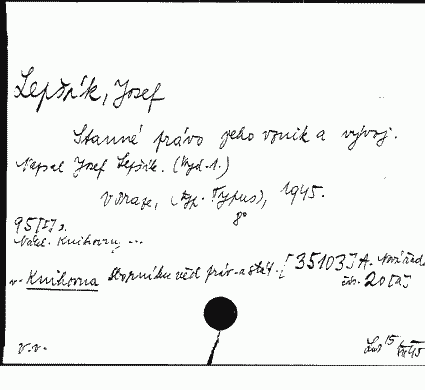 Lepšík, Josef
Stanné právo jeho vznik a vývoj.
Napsal Josef Lepšík. (Vyd. 1.)
V Praze, (Typ. Typus), 1945.
8°
95 [I] s.
Knihovny ...
v- Knihovna Sborníku věd práv. a stát. [35103 J A.
čís. 20
V.V.
15
45